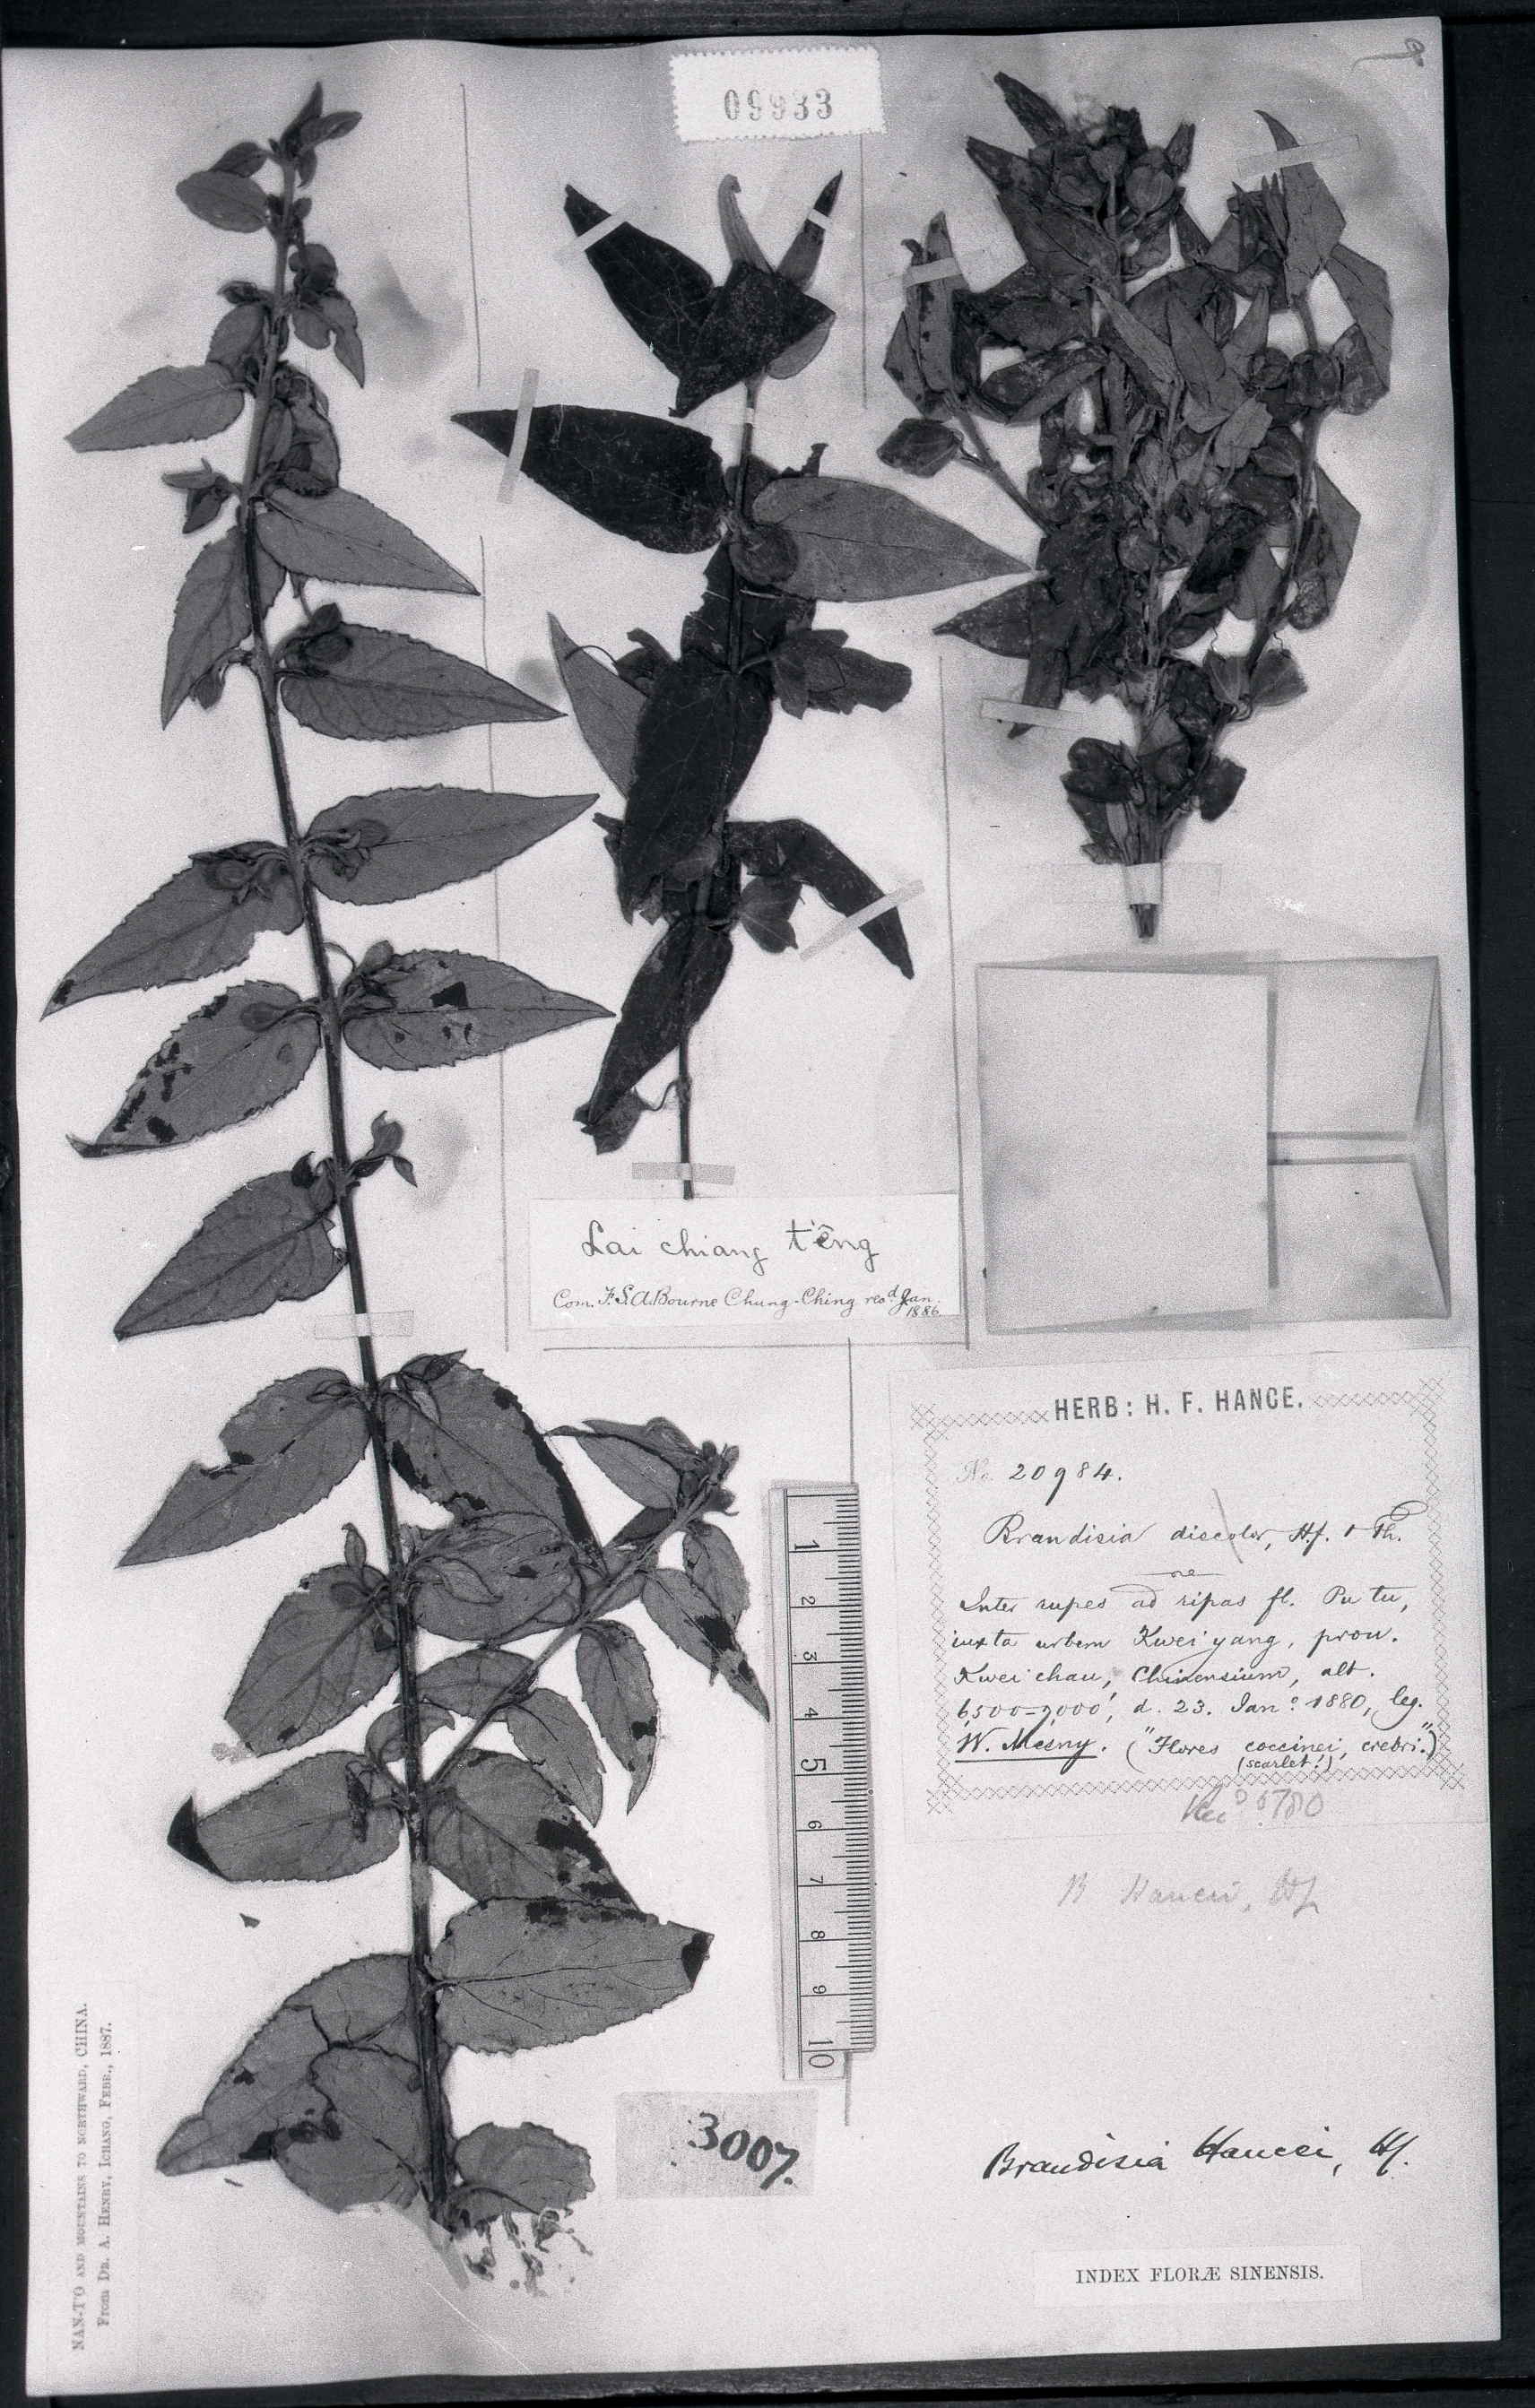 09933
Lai chiang t'êng
Com. F. S. A. Bourne Chung-Ching recd. Jan. 1886
HERB: H. F. HANCE.
No. 20984.
Brandisia discolor, Hf. & Th.
Inter rupes ad ripas fl. Pu tu,
iuxta urbem Kwei yang, prov.
Kwei chau, Chinensium, alt.
6,500-7,000', d. 23. Jano. 1880, leg.
W. Mesny. ("Flores coccinei, crebri.")
(scarlet!)
B Hancei, Hf
1
2
3
4
5
6
7
8
9
10
3007.
Brandisia Hancei, Hf.
INDEX FLORÆ SINENSIS.
NAN-T'O AND MOUNTAINS TO NORTHWARD, CHINA.
From DR. A. HENRY, ICHANG, FEBR., 1887.